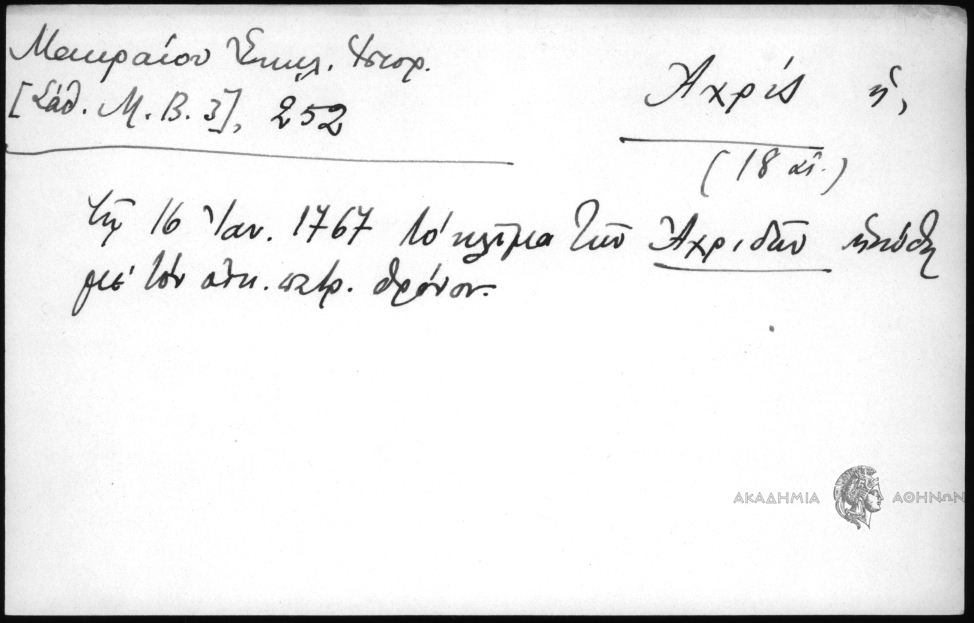 Μακραίου Ἐκκλ. Ἱστορ.
[Σάθ. Μ. Β. 3], 252
Ἀχρίς ἡ,
(18 αἰ.)
τῇ 16 Ἰαν. 1767 τό κλῖμα τῶν Ἀχριδῶν ἡνώθη
μέ τόν οἰκ. πατρ. θρόνον.
ΑΚΑΔΗΜΙΑ ΑΘΗΝΩΝ